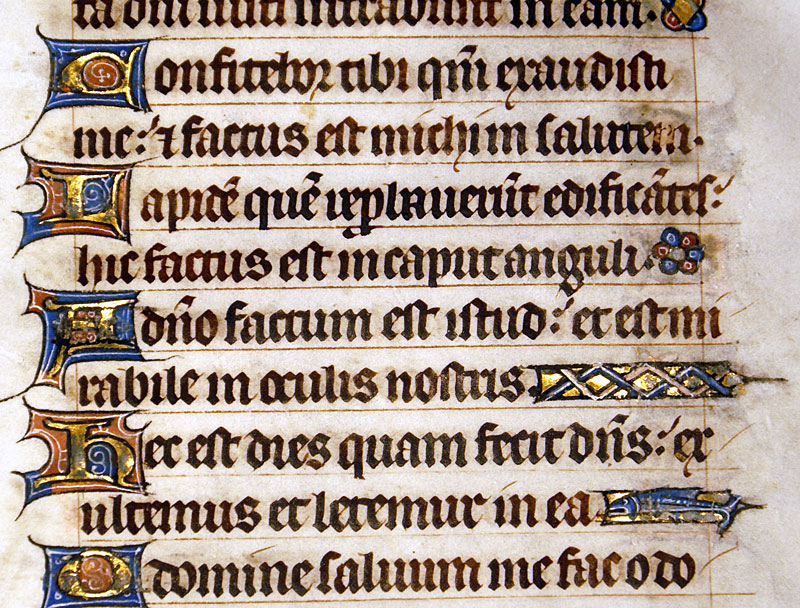 ta dñi iusti intrabunt in eam.
Confitebor tibi qm̃ exaudisti
me: ⁊ factus est michi in salutem.
Lapidẽ quẽ reꝓbauerũt edificãtes:
hic factus est in caput anguli.
A dño factum est istud: et est mi
rabile in oculis nostris.
Hec est dies quam fecit dñs: ex
ultemus et letemur in ea
O domine saluum me fac o do